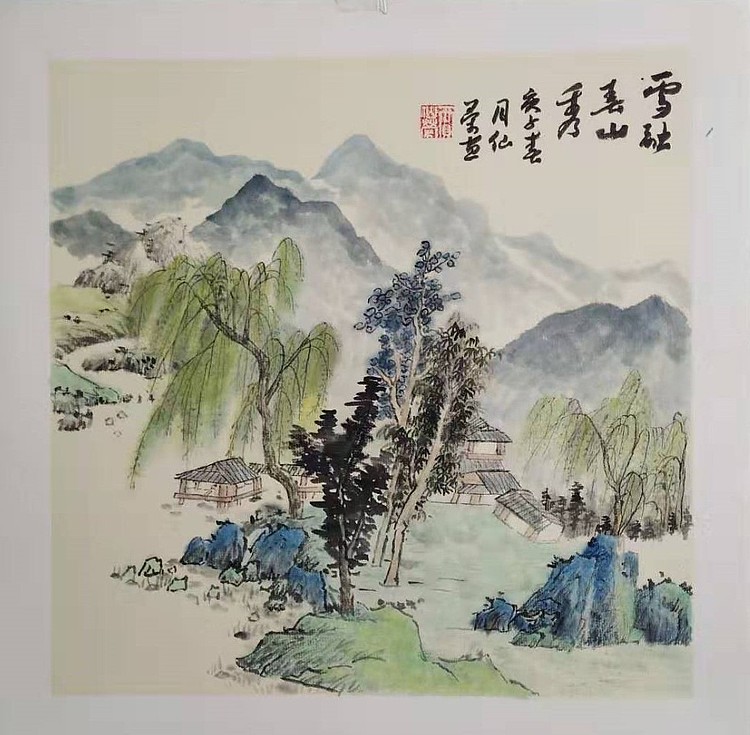 雪融
春山
秀
庚子春
月仙
画